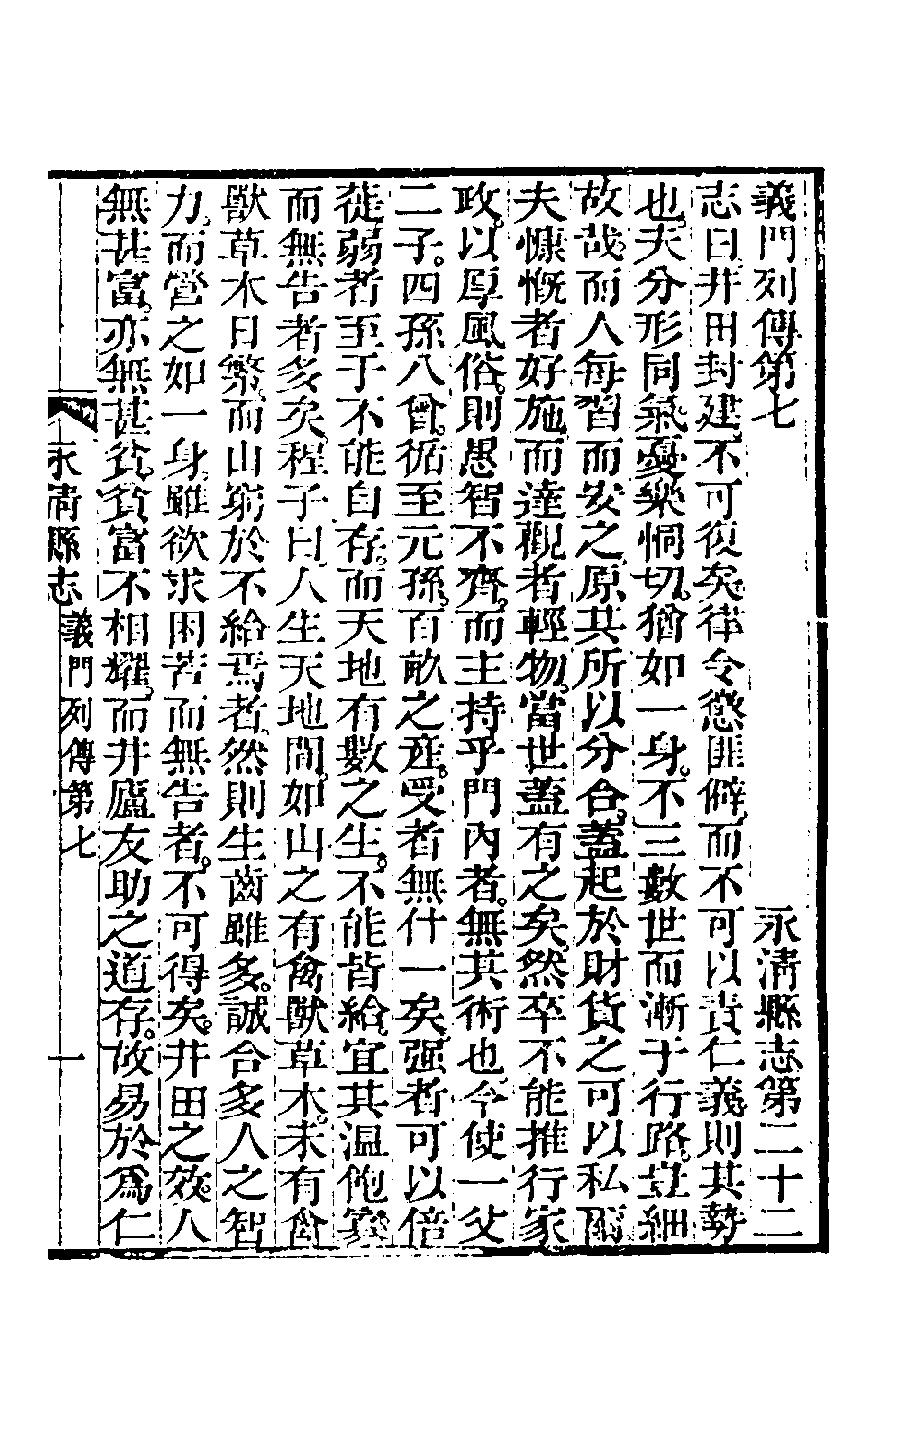 義門列傳第七　永清縣志第二十二
志曰井田封建不可復矣律令懲匪僻而不可以責仁義則其勢
也夫分形同氣憂樂恫切猶如一身不三數世而漸于行路豈細
故哉而人每習而安之原其所以分合蓋起於財貨之可以私爾
夫慷慨者好施而達觀者輕物當世蓋有之矣然卒不能推行家
政以厚風俗則愚智不齊而主持乎門內者無其術也今使一父
二子四孫八曾循至元孫百畝之產受者無什一矣强者可以倍
徙弱者至于不能自存而天地有數之生不能皆給宜其溫飽寡
而無告者多矣程子曰人生天地間如山之有禽獸草木未有禽
獸草木日繁而山窮於不給焉者然則生齒雖多誠合多人之智
力而營之如一身雖欲求困苦而無告者不可得矣井田之效人
無甚富亦無甚貧貧富不相耀而井廬友助之道存故易於爲仁
永清縣志　義門列傳第七　一